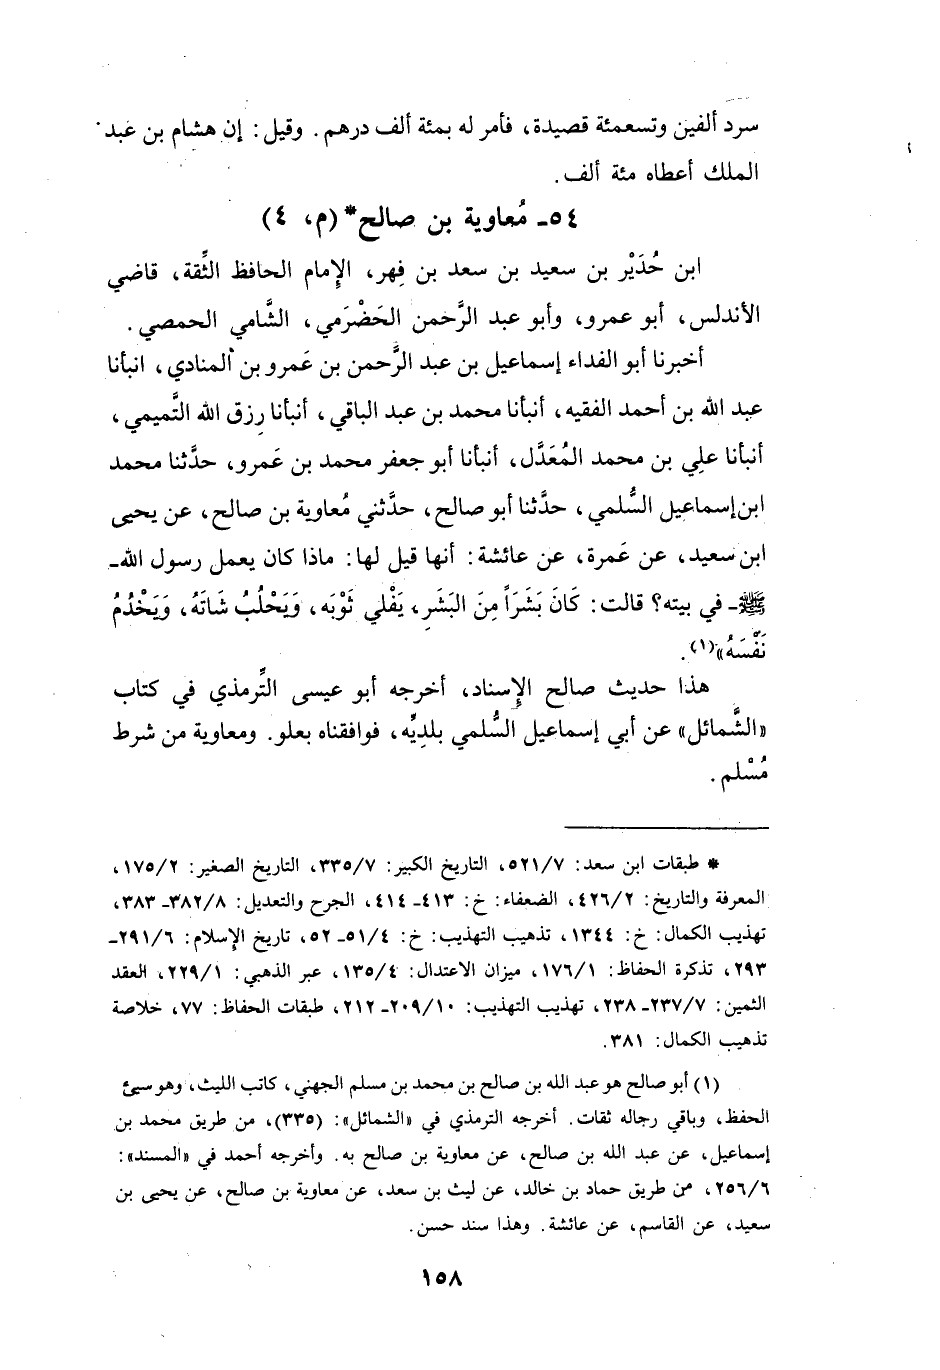 سرد ألفين وتسعمئة قصيدة، فأمر له بمئة ألف درهم. وقيل: إن هشام بن عبد
الملك أعطاه مئة ألف.
٥٤ـ مُعاوية بن صالح* (م، ٤)
ابن حُدَيْر بن سعيد بن سعد بن فِهر، الإمام الحافظ الثِّقة، قاضي
الأندلس، أبو عمرو، وأبو عبد الرَّحمن الحَضْرَمي، الشَّامي الحمصي.
أخبرنا أبو الفداء إسماعيل بن عبد الرَّحمن بن عَمرو بن المنادي، انبأنا
عبد الله بن أحمد الفقيه، أنبأنا محمد بن عبد الباقي، أنبأنا رزق الله التَّميمي،
أنبأنا علي بن محمد المُعَدَّل، أنبأنا أبو جعفر محمد بن عَمرو، حدَّثنا محمد
ابن إسماعيل السُّلمي، حدَّثنا أبو صالح، حدَّثني مُعاوية بن صالح، عن يحيى
ابن سعيد، عن عَمرة، عن عائشة: أنها قيل لها: ماذا كان يعمل رسول الله ـ
ﷺ ـ في بيته؟ قالت: كَانَ بَشَرَاً مِنَ البَشَرِ، يَفْلي ثَوْبَه، وَيَحْلُبُ شَاتَهُ، وَيَخْدُمُ
نَفْسَهُ»(١).
هذا حديث صالح الإِسناد، أخرجه أبو عيسى التِّرمذي في كتاب
«الشَّمائل» عن أبي إسماعيل السُّلمي بلديِّه، فوافقناه بعلو. ومعاوية من شرط
مُسْلم.
* طبقات ابن سعد: ٥٢١/٧، التاريخ الكبير: ٣٣٥/٧، التاريخ الصغير: ١٧٥/٢،
المعرفة والتاريخ: ٤٢٦/٢، الضعفاء: خ: ٤١٣ـ ٤١٤، الجرح والتعديل: ٣٨٢/٨ـ ٣٨٣،
تهذيب الكمال: خ: ١٣٤٤، تذهيب التهذيب: خ: ٥١/٤ـ ٥٢، تاريخ الإسلام: ٢٩١/٦ـ
٢٩٣، تذكرة الحفاظ: ١٧٦/١، ميزان الاعتدال: ١٣٥/٤، عبر الذهبي: ٢٢٩/١، العقد
الثمين: ٢٣٧/٧ـ ٢٣٨، تهذيب التهذيب: ٢٠٩/١٠ـ ٢١٢، طبقات الحفاظ: ٧٧، خلاصة
تذهيب الكمال: ٣٨١.
(١) أبو صالح هو عبد الله بن صالح بن محمد بن مسلم الجهني، كاتب الليث، وهو سيئ
الحفظ، وباقي رجاله ثقات. أخرجه الترمذي في «الشمائل»: (٣٣٥)، من طريق محمد بن
إسماعيل، عن عبد الله بن صالح، عن معاوية بن صالح به. وأخرجه أحمد في «المسند»:
٢٥٦/٦، من طريق حماد بن خالد، عن ليث بن سعد، عن معاوية بن صالح، عن يحيى بن
سعيد، عن القاسم، عن عائشة. وهذا سند حسن.
١٥٨